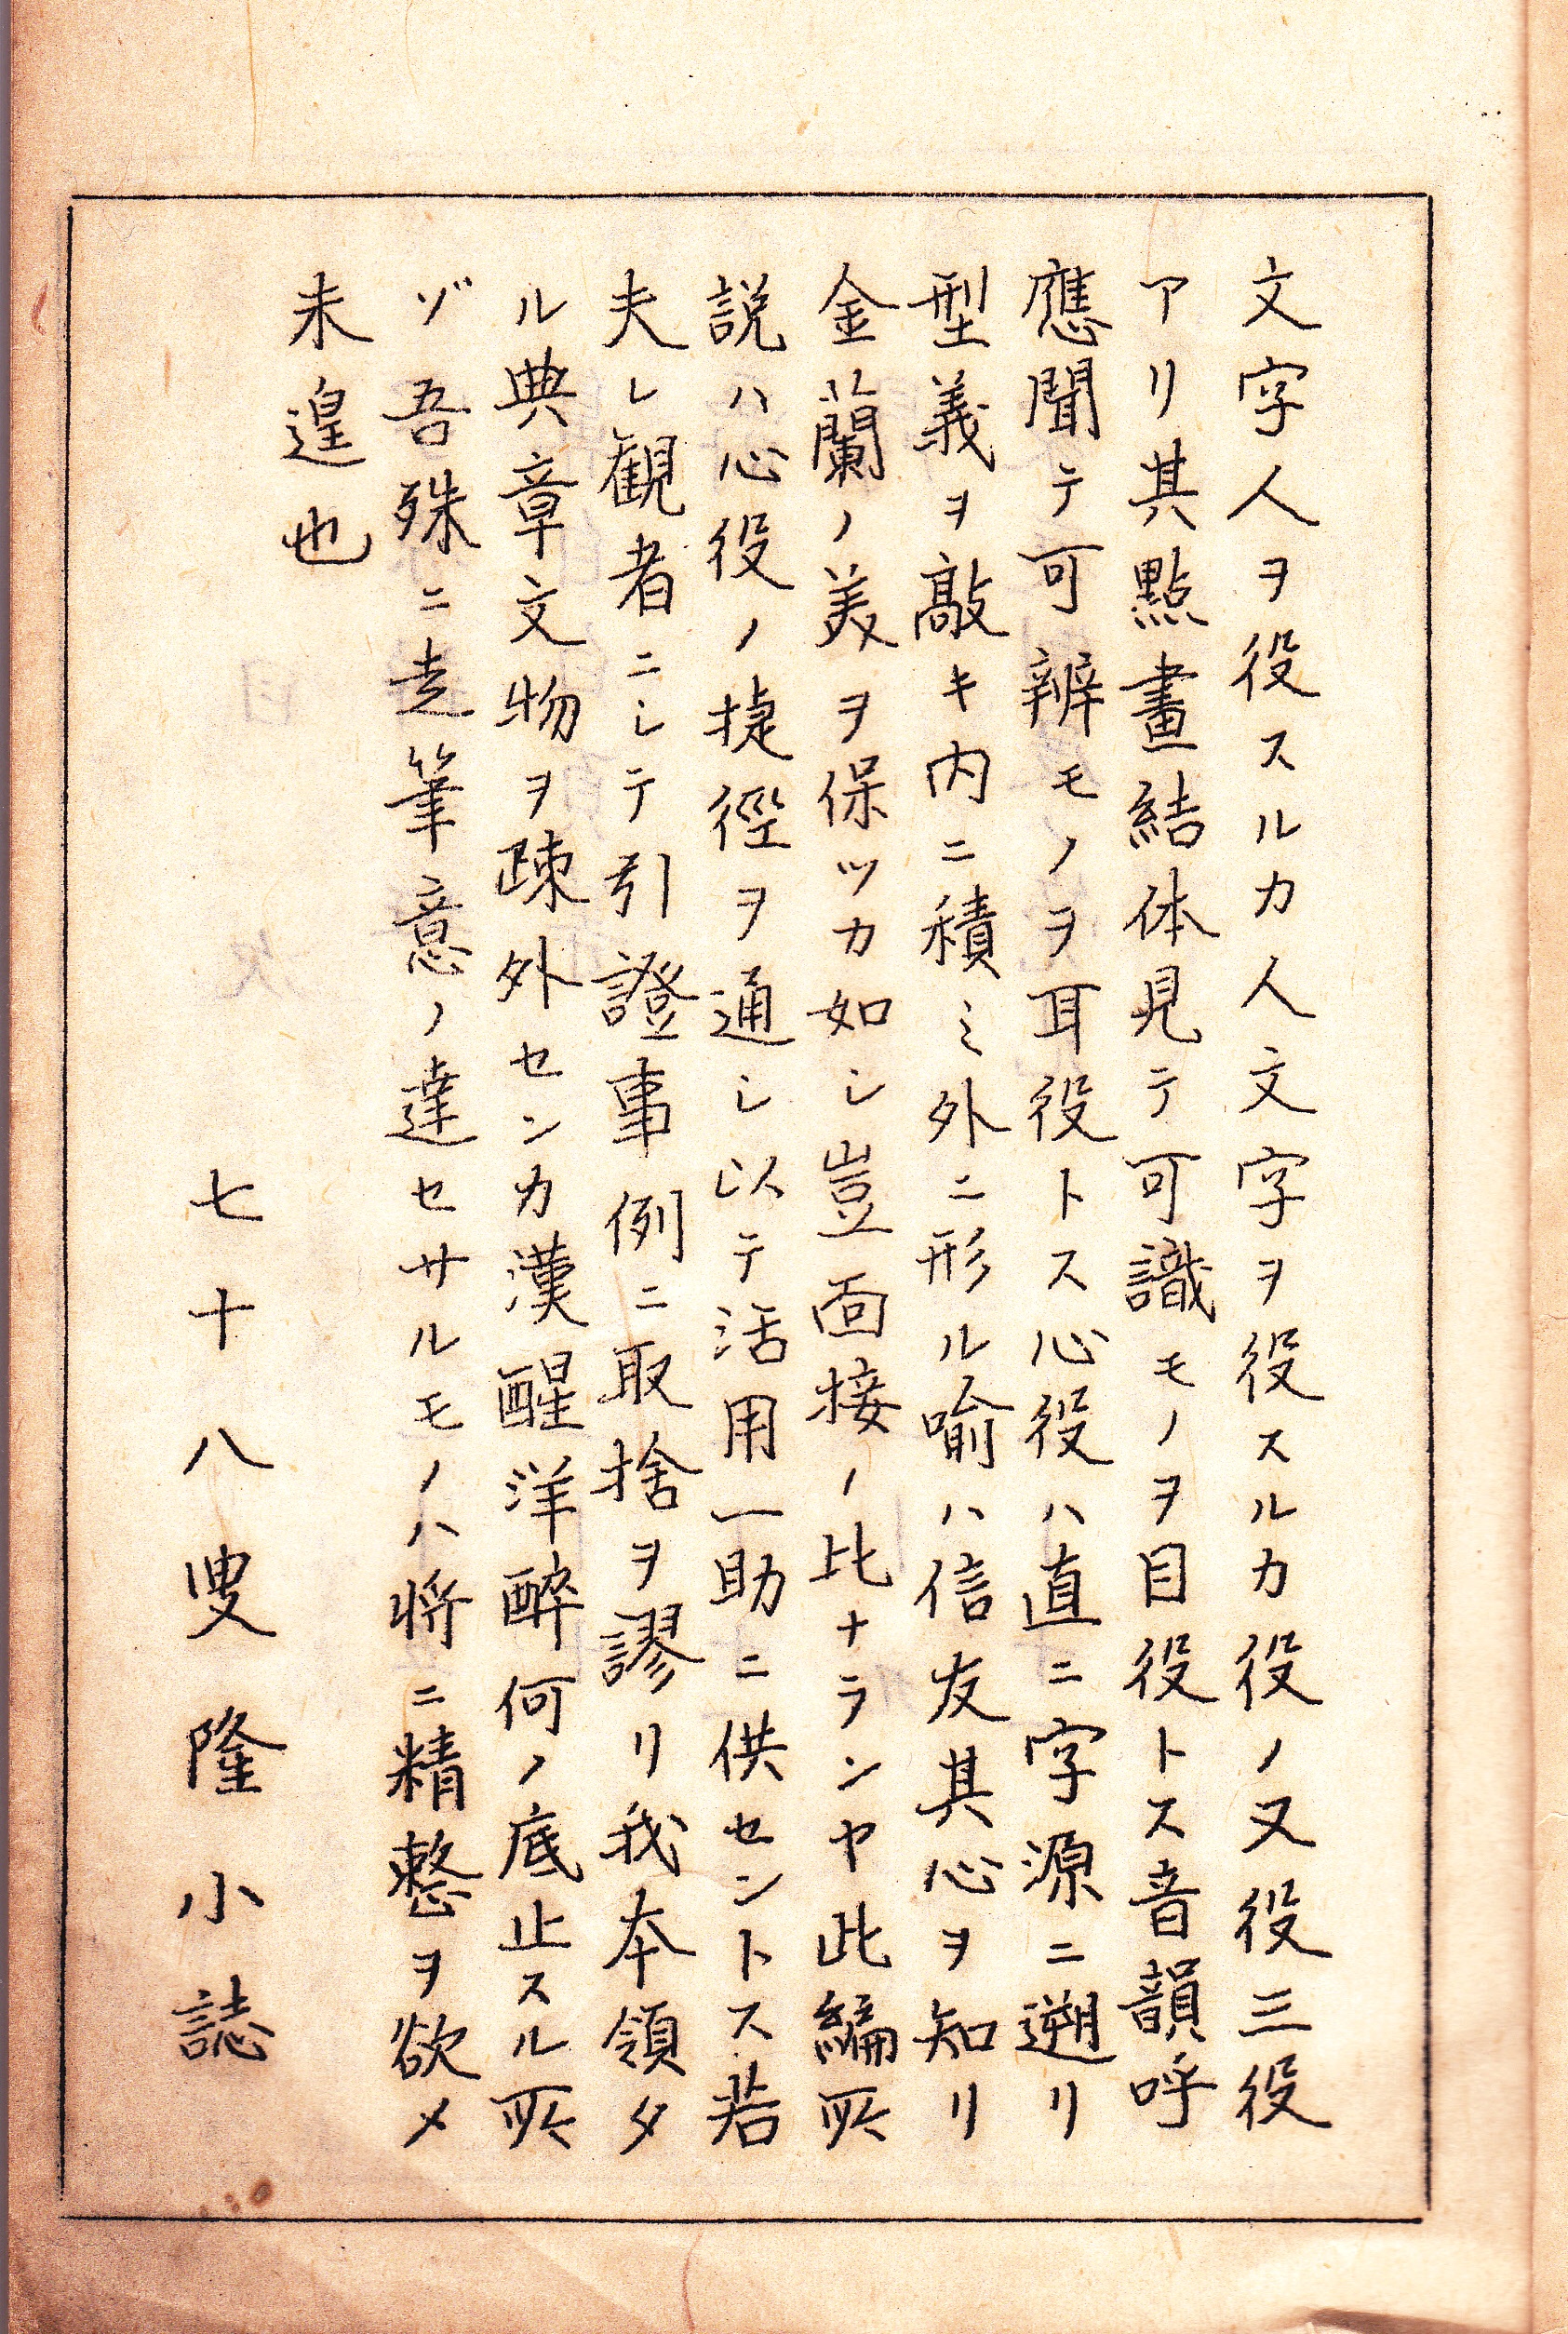 文字人ヲ役スルカ人文字ヲ役スルカ役ノ又役三役
アリ其點畫結体見テ可識モノヲ目役トス音韻呼
應聞テ可辨モノヲ耳役トス心役ハ直ニ字源ニ遡リ
型義ヲ敲キ内ニ積ミ外ニ形ル喩ハ信友其心ヲ知リ
金蘭ノ美ヲ保ツカ如シ豈面接ノ比ナランヤ此編所
説ハ心役ノ捷徑ヲ通シ以テ活用一助ニ供セントス若
夫レ観者ニシテ引證事例ニ取捨ヲ謬リ我本領タ
ル典章文物ヲ疎外センカ漢醒洋醉何ノ底止スル所
ゾ吾殊ニ走筆意ノ達セサルモノハ将ニ精整ヲ欲メ
未遑也
七十八叟隆小誌